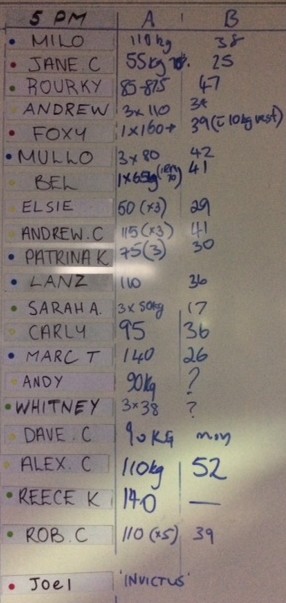 5 PM A B
MILO 110kg 38
JANE.C 55kg 25
ROURKY 85-87.5 47
ANDREW 3x110 34
FOXY 1x160+ 39 (c 10kg vest)
MULLO 3x80 42
BEL 1x65kg 41
ELSIE 50 (x3) 29
ANDREW.C 115 (x3) 41
PATRINA K 75(3) 30
LANZ 110 36
SARAH A. 3x50kg 17
CARLY 95 36
MARC T 140 26
ANDY 90kg ?
WHITNEY 3x38 ?
DAVE.C 90KG
ALEX.C 110kg 52
REECE K 140 —
ROB.C 110 (x5) 39
JOEL 'INVICTUS'